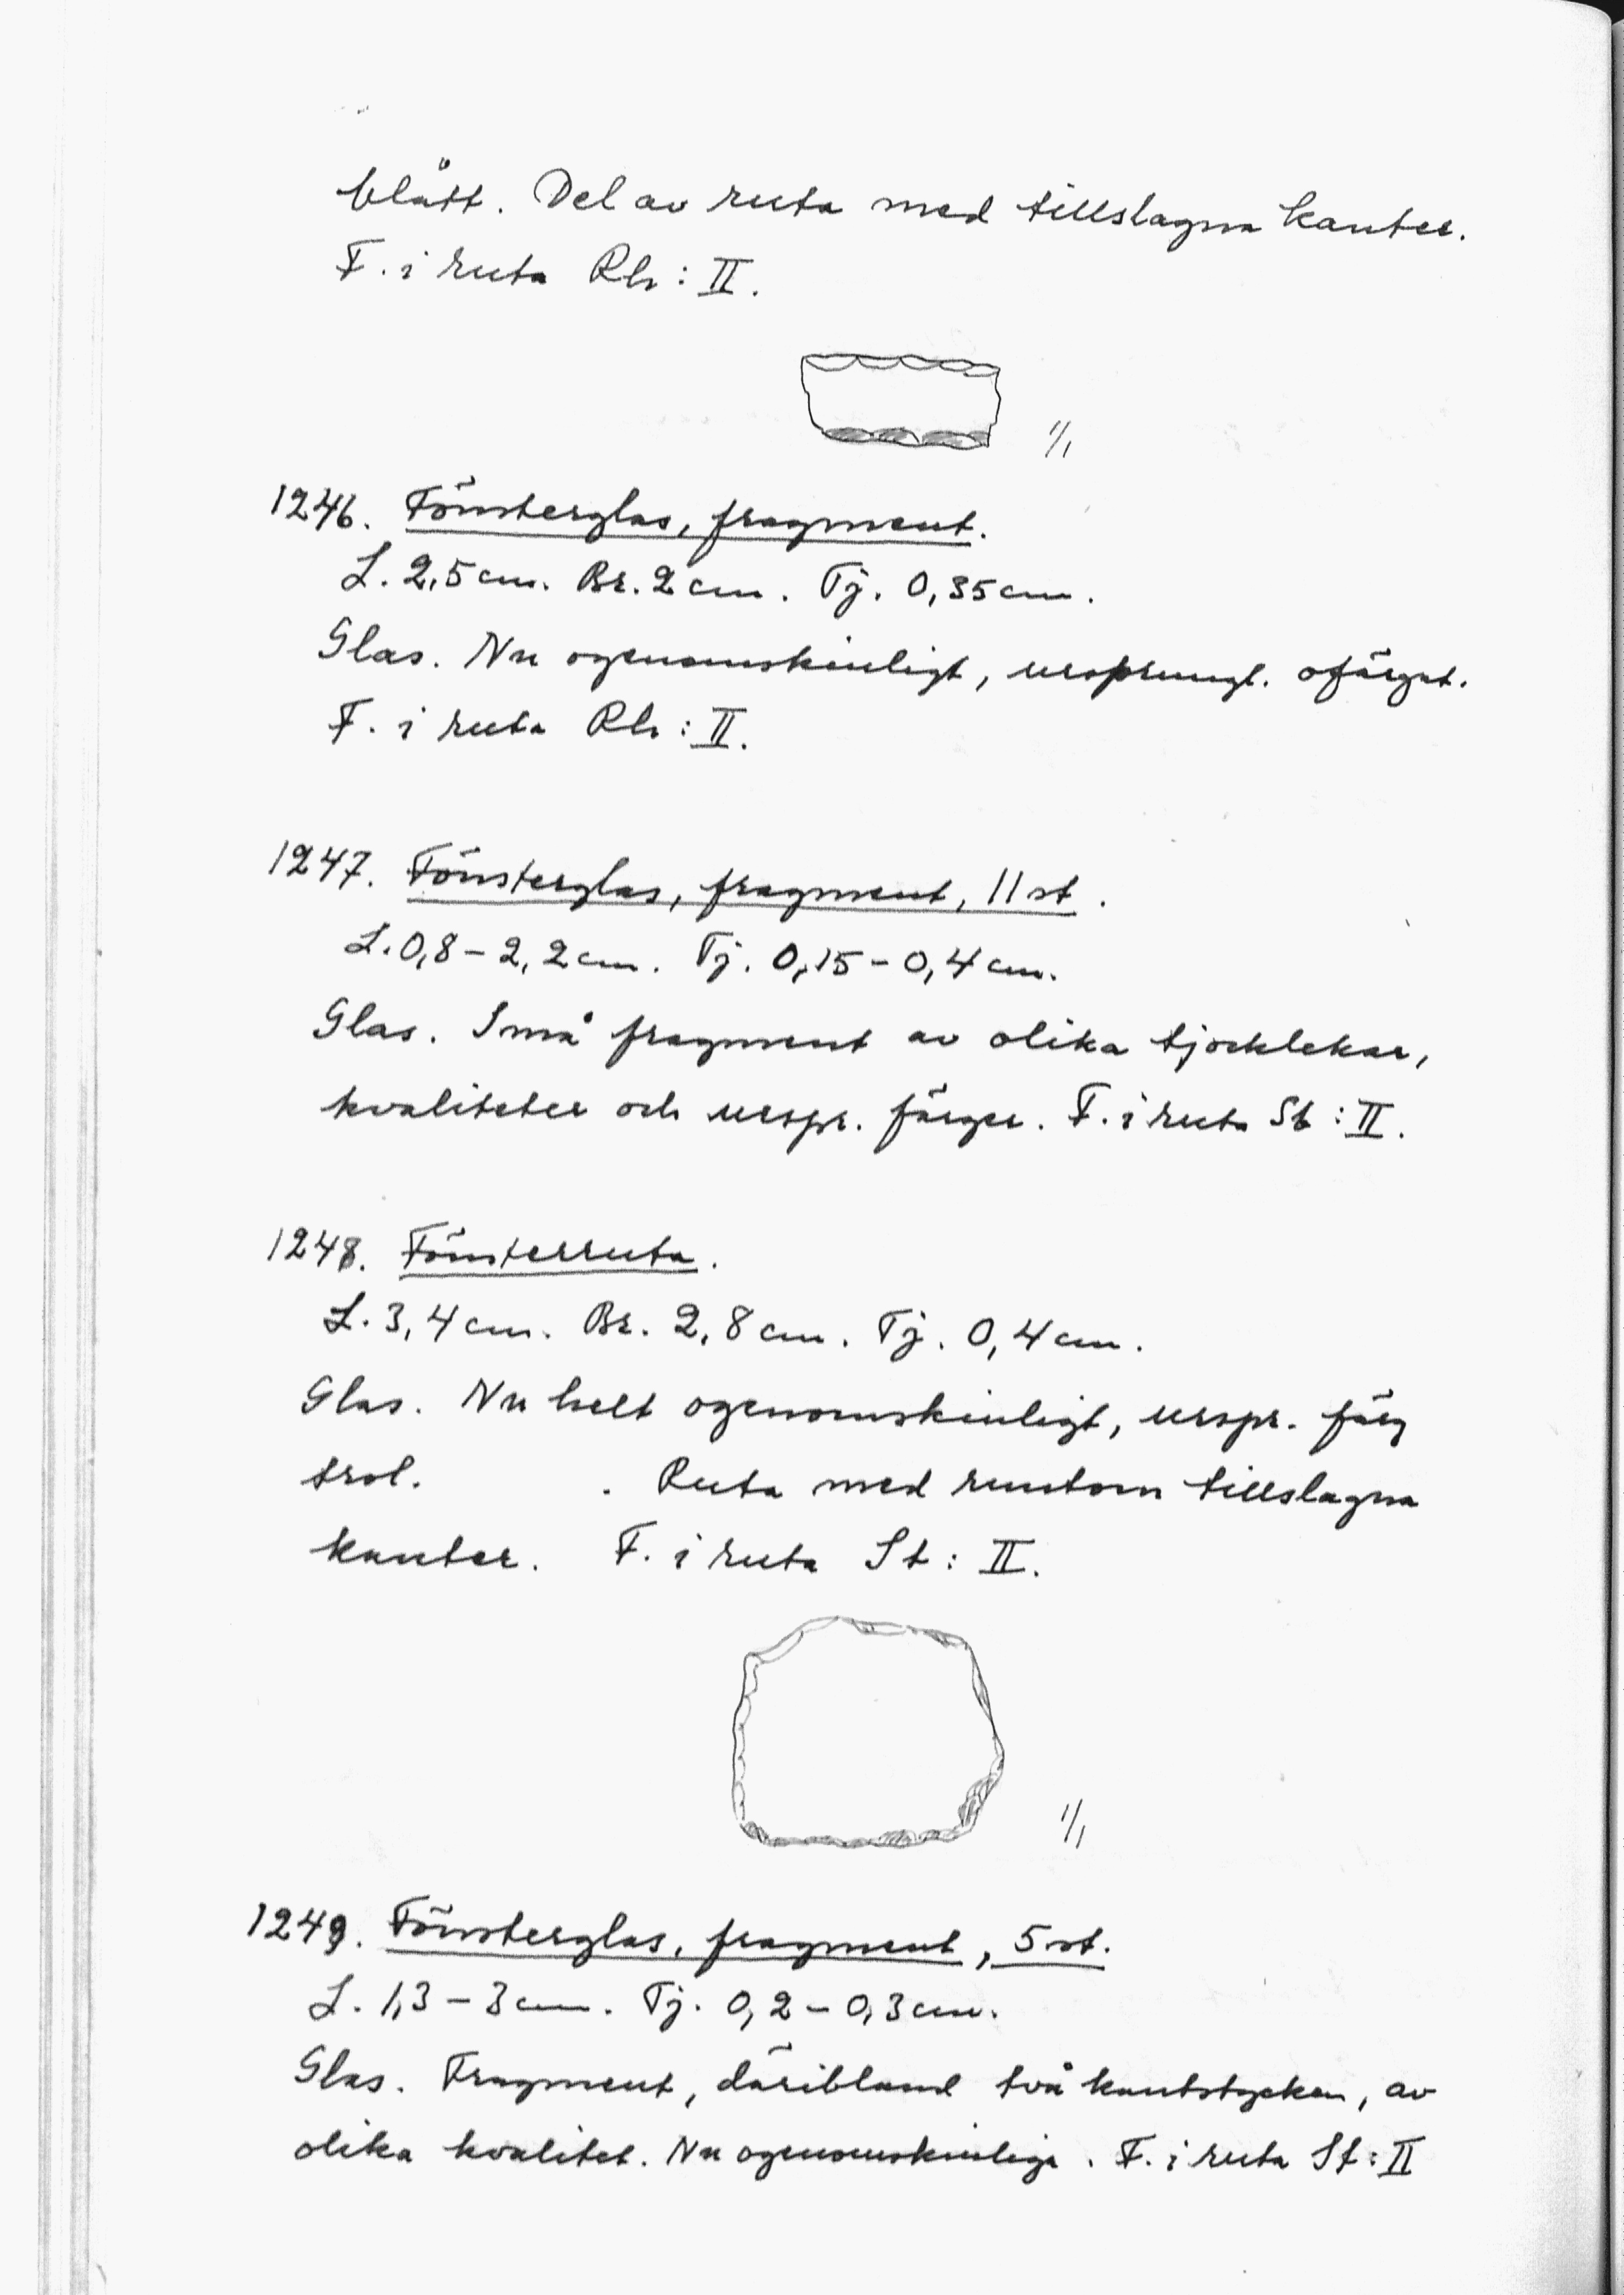 blått. Del av ruta med tillslagna kanter.
F. i ruta Rh : II.
1/1
1246. Fönsterglas, fragment.
L. 2,5 cm. Br. 2 cm. Tj. 0,35 cm.
Glas. Nu ogenomskinligt, ursprungl. ofärgat.
F. i ruta Rh : II.
1247. Fönsterglas, fragment, 11 st.
L. 0,8 – 2,2 cm. Tj. 0,15 – 0,4 cm.
Glas. Små fragment av olika tjocklekar,
kvaliteter och urspr. färger. F. i ruta St : II.
1248. Fönsterruta.
L. 3,4 cm. Br. 2,8 cm. Tj. 0,4 cm.
Glas. Nu helt ogenomskinligt, urspr. färg
trol. . Ruta med runtom tillslagna
kanter. F. i ruta St : II.
1/1
1249. Fönsterglas, fragment, 5 st.
L. 1,3 – 3 cm. Tj. 0,2 – 0,3 cm.
Glas. Fragment, däribland två kantstycken, av
olika kvalitet. Nu ogenomskinliga. F. i ruta St : II